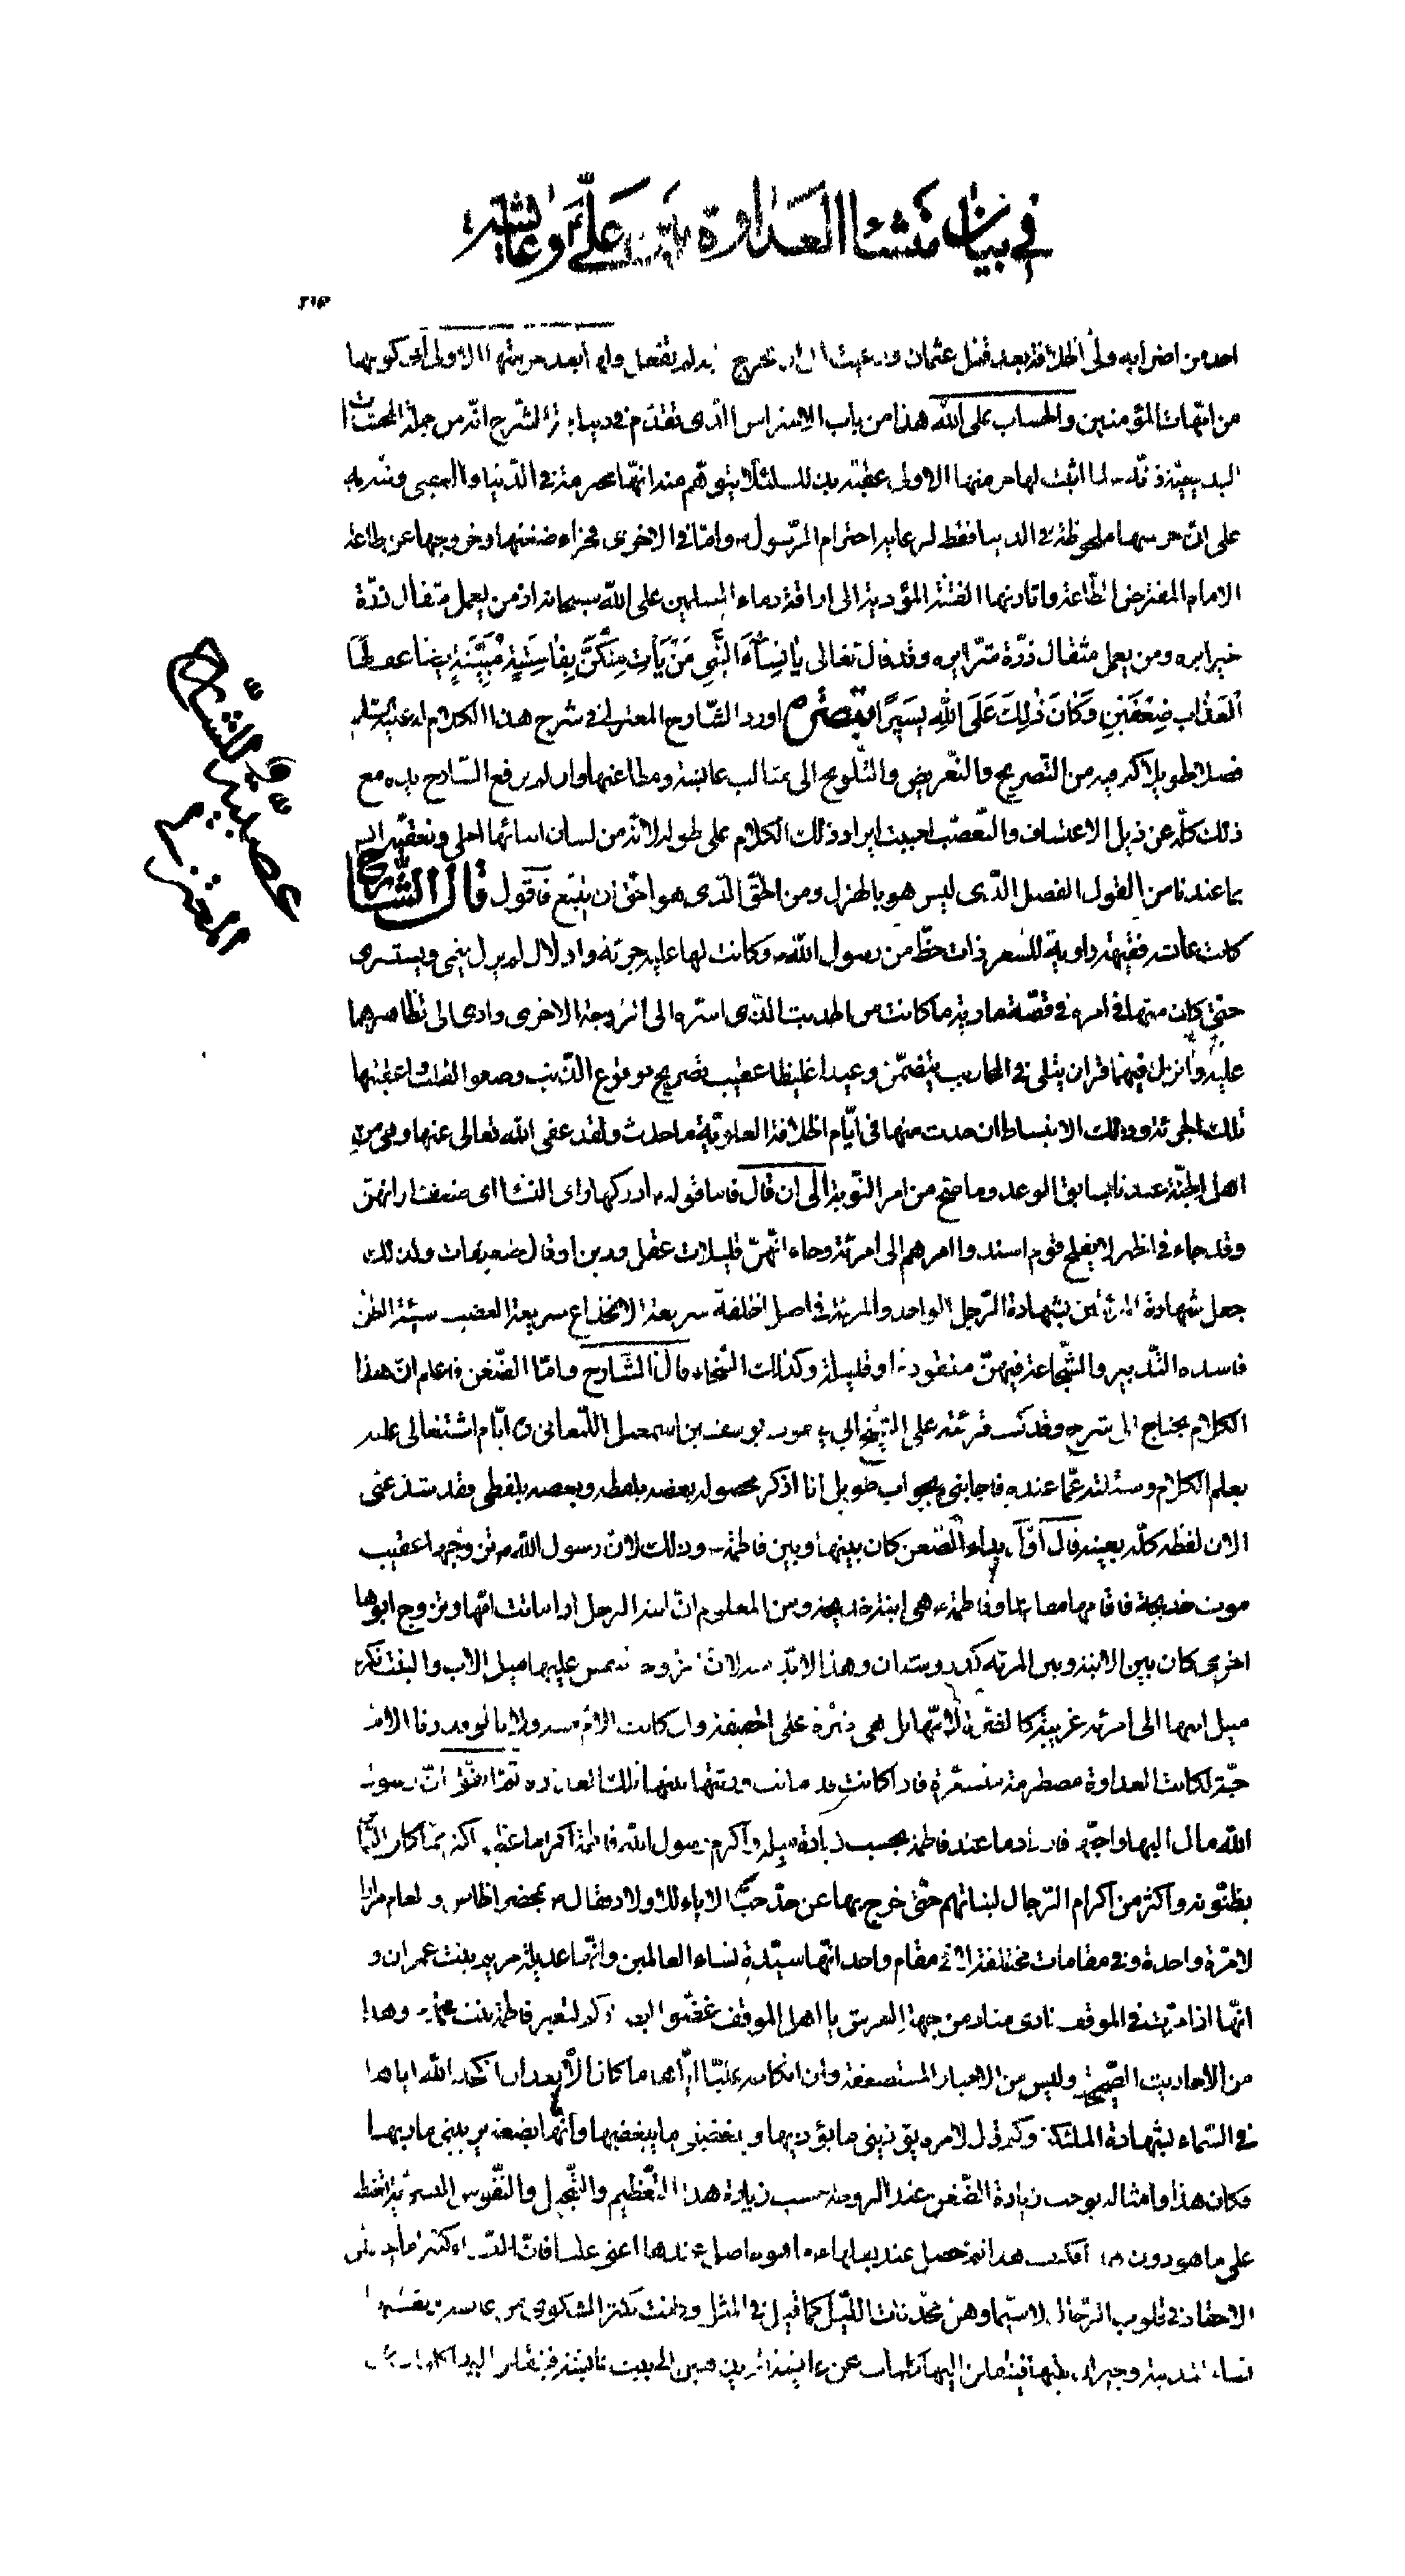 في بيان منشأ العداوة بين علي وعائشة
٢١٣
احد من اضرابه ولى الخلافة بعد قتل عثمان الى ان تخرج اليه لم تفعل ولها بعد حرمتها الاولى اى كونها
من امّهات المؤمنين والحساب على الله هذا من باب الاحتراس الّذى تقدّم فى ديباجة الشّرح انّه من جملة المحسّنات
البديعيّة فانّه لما اثبت لها حرمتها الاولى عقّبه بذلك لئلّا يتوهّم منه انّها محترمة فى الدّنيا والعقبى ونبّه به
على انّ حرمتها ملحوظة فى الدنيا فقط لرعاية احترام الرّسول وامّا فى الاخرى فجزاء ضغنها وخروجها عن طاعة
الامام المفترض الطّاعة واثارتها الفتنة المؤدية الى اراقة دماء المسلمين على الله سبحانه اذ من يعمل مثقال ذرّة
خيرا يره ومن يعمل مثقال ذرّة شرّا يره وقد قال تعالى يا نِسآءَ النَّبِي مَنْ يَأْتِ مِنْكُنَّ بِفاحِشَةٍ مُبَيِّنَةٍ يضاعف لها
الْعَذابُ ضِعْفَيْنِ وَكانَ ذلِكَ عَلَى اللهِ يَسيرًا تبصرة اورد الشّارح المعتزلى فى شرح هذا الكلام له عليه السّلم
فصلا طويلا كثير فيه من التّصريح والتّعريض والتّلويح الى مثالب عائشة ومطاعنها وان لم يرفع الشّارح يده مع
ذلك كلّه عن ذيل الاعتساف والتّعصّب احببت ايراد ذلك الكلام على طوله لانّه من لسان ابنائها احلى ونعقّبه
بما عندنا من القول الفصل الّذى ليس هو بالهزل ومن الحقّ الّذى هو احقّ ان يتّبع فاقول قال الشّارح
كانت عائشة فقيهة راوية للشعر ذات حظّ من رسول الله وكانت لها عليه جرئة وادلال لم يزل ينمى ويستشرى
حتّى كان منها فى امره فى قصّة مارية ما كانت من الحديث الّذى اسرّه الى الزوجة الاخرى وادى الى تظاهرهما
عليه وانزل فيهما قران يتلى فى المحاريب يتضمّن وعيدا غليظا عقيب تصريح بوقوع الذّنب وصغو القلب واعقبتها
تلك الجرئة وذلك الانبساط ان حدث منها فى ايّام الخلافة العلويّة ما حدث ولقد عفى الله تعالى عنها وهى من
اهل الجنّة عندنا بسابق الوعد وما صحّ من امر التّوبة الى ان قال فاما قوله ادركها راى النساء اى ضعف ارائهنّ
وقد جاء فى الخبر لا يفلح قوم اسندوا امرهم الى امرئة وجاء انّهنّ قليلات عقل ودين او قال ضعيفات ولذلك
جعل شهادة المرئتين بشهادة الرّجل الواحد والمرئة فى اصل الخلقة سريعة الانخداع سريعة الغضب سيّئة الظنّ
فاسدة التّدبير والشّجاعة فيهنّ مفقودة او قليلة وكذلك السّخاء قال الشّارح وامّا الضّغن فاعلم انّ هذا
الكلام يحتاج الى شرح وقد كنت قرئته على الشّيخ ابى يعقوب يوسف بن اسمعيل اللّمعانى ره ايّام اشتغالى عليه
بعلم الكلام وسئلته عمّا عنده فاجابنى بجواب طويل انا اذكر محصوله بعضه بلفظه وبعضه بلفظى فقد شذ عنّى
الان لفظه كلّه بعينه قال اوّل بداء الضّغن كان بينها وبين فاطمة وذلك لانّ رسول الله تزوّجها عقيب
موت خديجة فاقامها مقامها وفاطمة هى ابنة خديجة ومن المعلوم انّ ابنة الرجل اذا ماتت امّها وتزوج ابوها
اخرى كان بين الابنة وبين المرئة كدر وشنئان وهذا لابدّ منه لانّ الزوجة تنفس عليها ميل الاب والبنت تكره
ميل ابيها الى امرئة غريبة كالضرّة لامّها بل هى ضرّة على الحقيقة وان كانت الامّ ميتة ولانا لو قدرنا الامّ
حيّة لكانت العداوة مضطرمة متسعّرة فاذا كانت قد ماتت ورثتها بنتها تلك العداوة ثمّ اتّفق انّ رسول
الله مال اليها واحبّها فازداد ما عند فاطمة بحسب زيادة ميله واكرم رسول الله فاطمة اكراما عظيما اكثر ممّا كان النّاس
يظنّونه واكثر من اكرام الرّجال لبناتهم حتّى خرج بها عن حدّ حبّ الاباء للاولاد فقال بمحضر الخاص والعام مرارا
لا مرّة واحدة وفى مقامات مختلفة لا فى مقام واحد انّها سيّدة نساء العالمين وانّها عديلة مريم بنت عمران و
انّها اذا مرّت فى الموقف نادى مناد من جهة العرش يا اهل الموقف غضّوا ابصاركم لتعبر فاطمة بنت محمّد وهذا
من الاحاديث الصّحيحة وليس من الاخبار المستضعفة وان انكاحه عليّا ايّاها ما كان الّا بعد ان انكحه الله اياها
فى السّماء بشهادة الملئكة وكم قال لا مرّة يؤذينى ما يؤذيها ويغضبنى ما يغضبها وانّها بضعة منّى يريبنى ما رابها
فكان هذا وامثاله يوجب زيادة الضّغن عند الزوجة حسب زيادة هذا التّعظيم والتّبجيل والنّفوس البشريّة تغيظ
على ما هو دون هذا فكيف هذا ثم حصل عند بعلها ما هو حاصل عندها اعنى عليّا فانّ النّساء كثيرا ما يجعلن
الاحقاد فى قلوب الرّجال لا سيّما وهنّ محدّثات اللّيل كما قيل فى المثل وكانت تكثر الشكوى من عائشة ويغشيها
نساء المدينة وجيران بيتها فينقلن اليها كلمات عن عائشة ثم يذهبن الى بيت عائشة فينقلن اليها كلمات عن
عصبيّة الشّارح المعتزلى